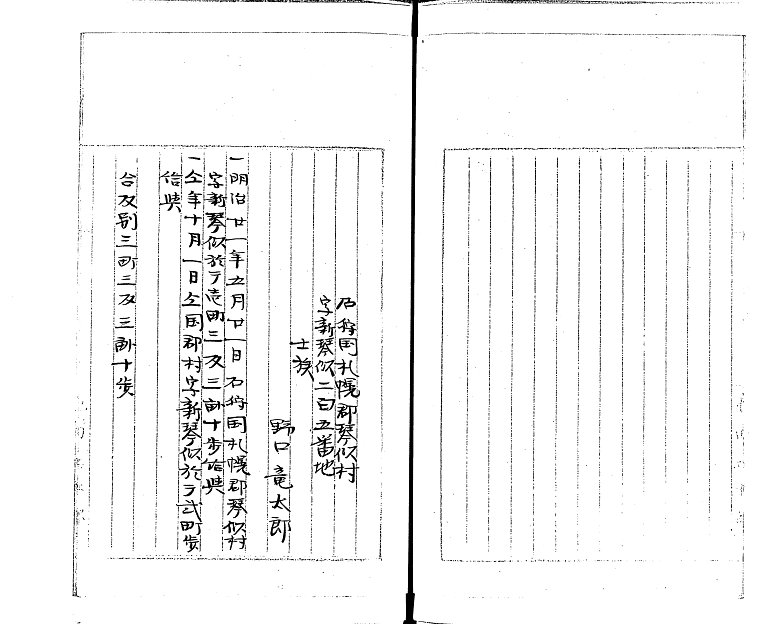 石狩国札幌郡琴似村
字新琴似二百五番地
士族
野口竜太郎
一明治廿一年五月廿一日石狩国札幌郡琴似村
字新琴似於テ壱町三反三畝十歩給与
一仝年十月一日仝国郡村字新琴似於テ弐町歩
給与
合反別三町三反三畝十歩